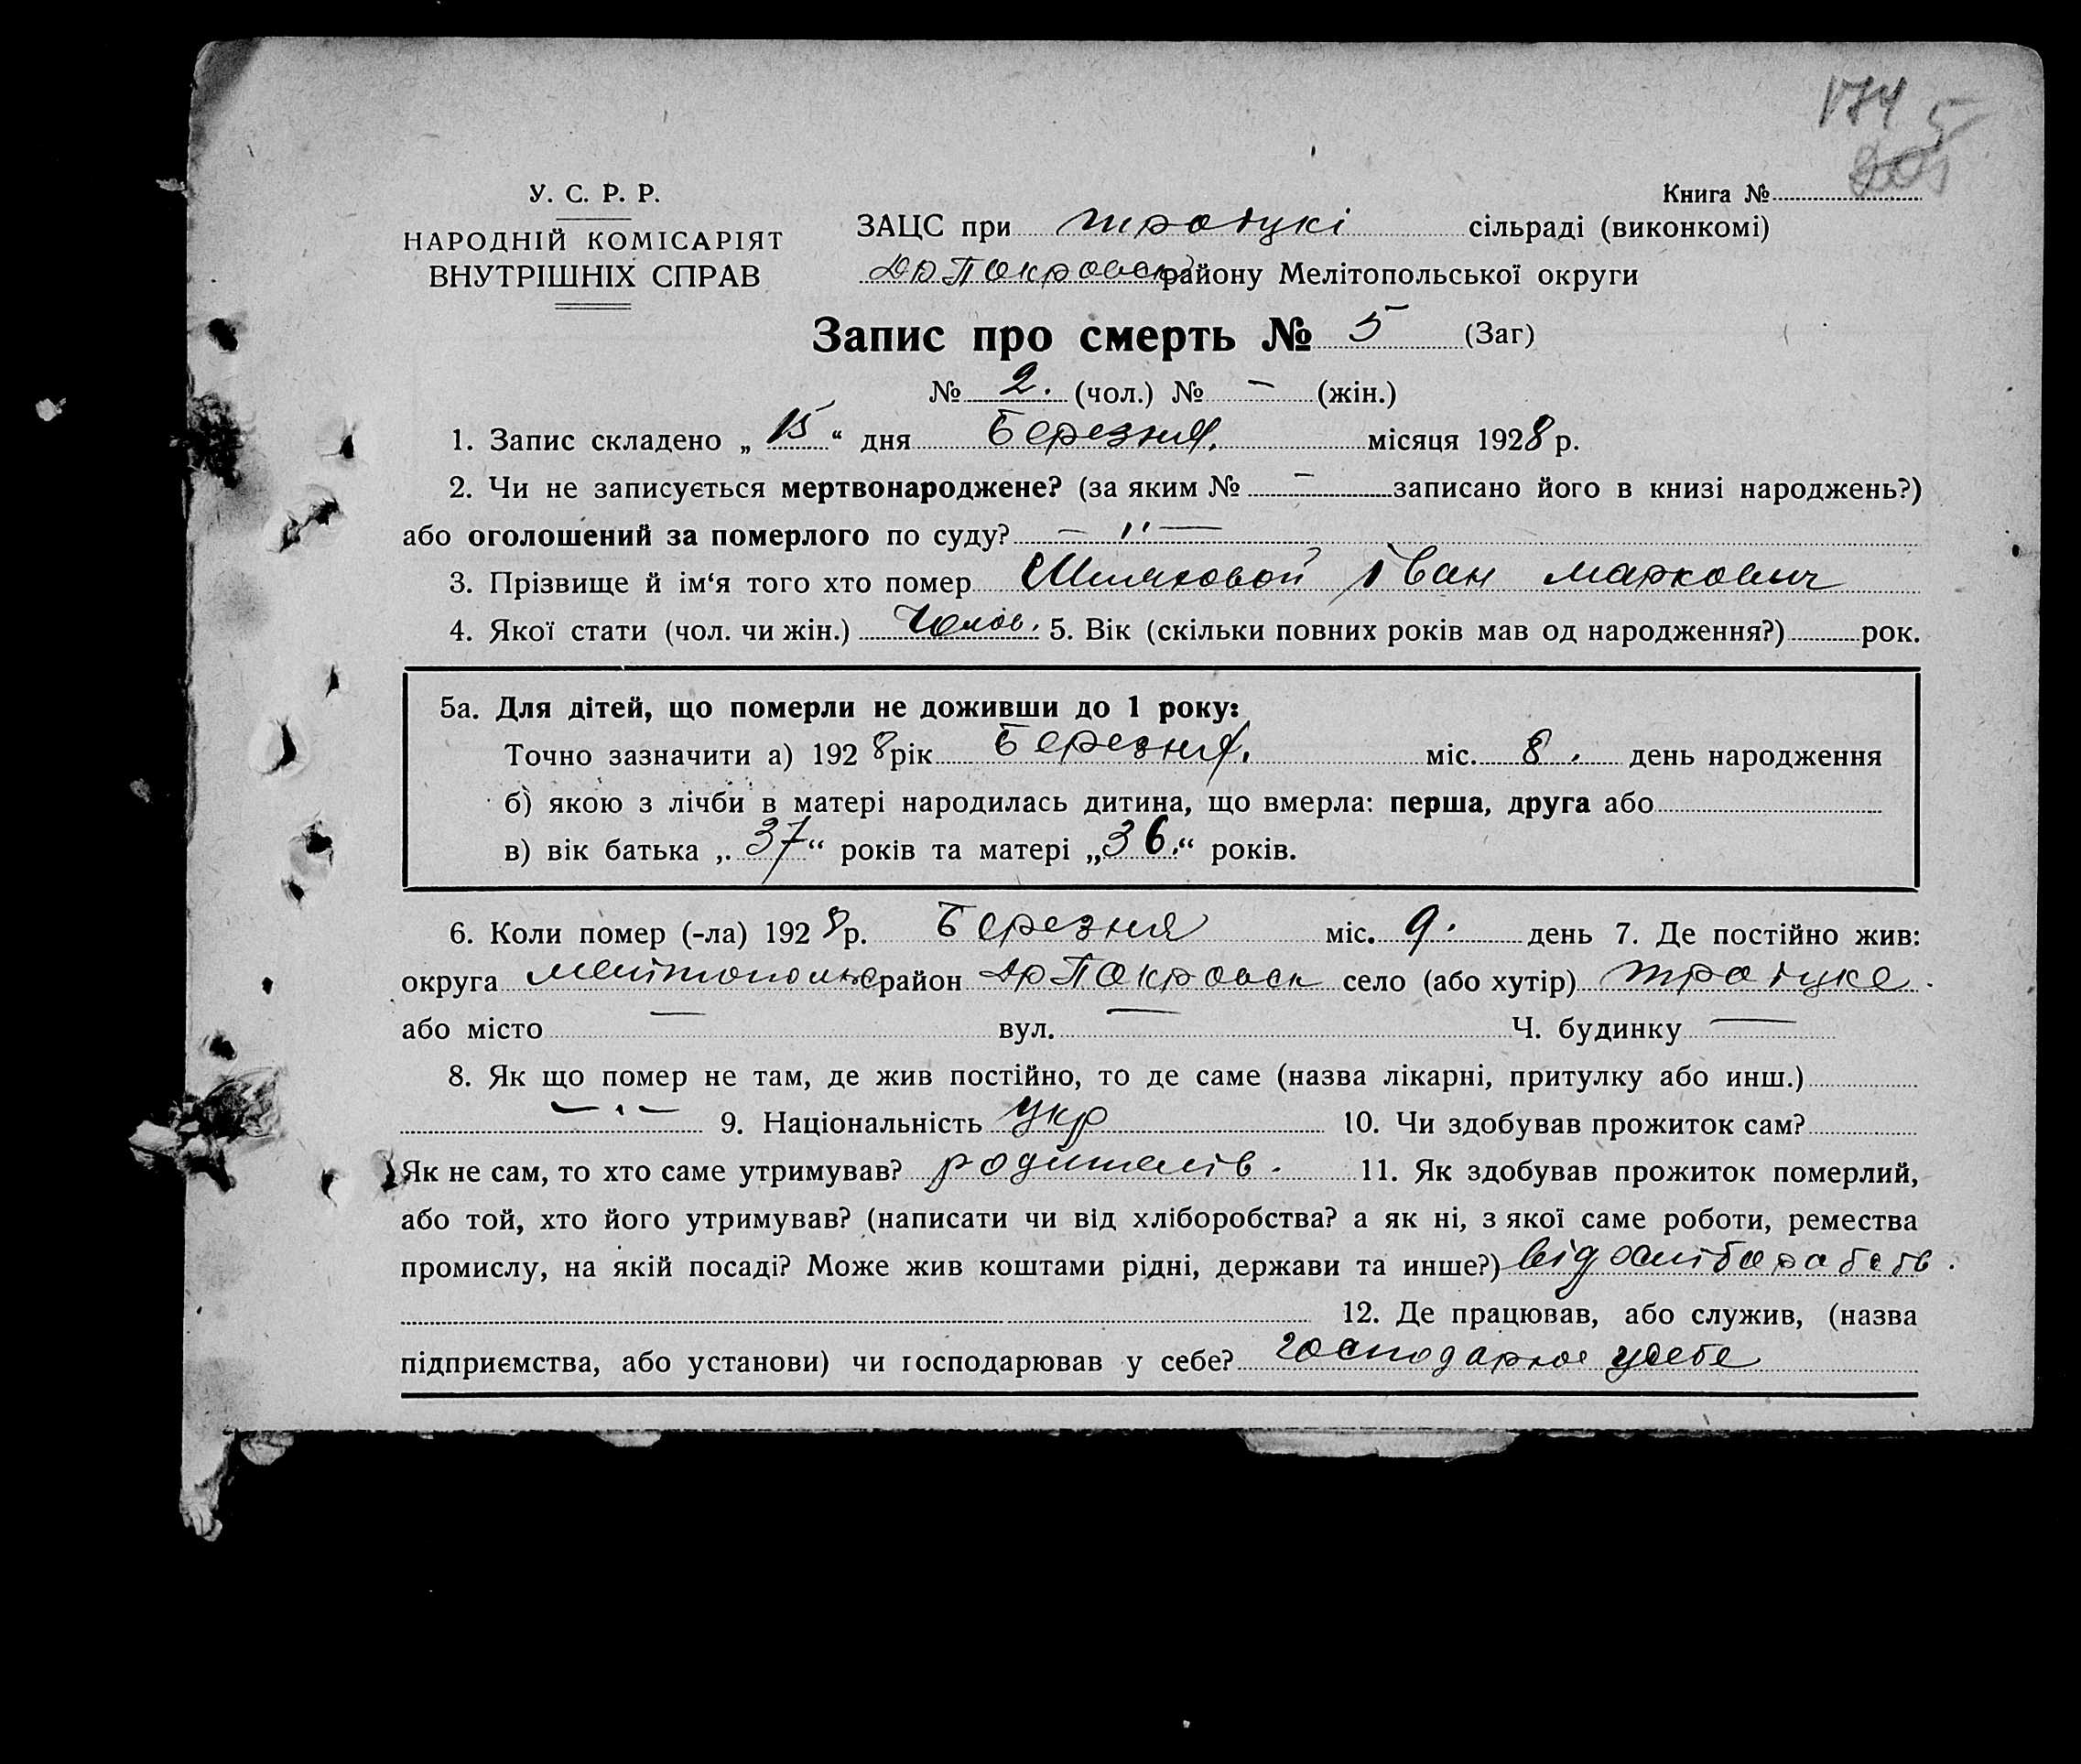 174 5
У. С. Р. Р.
Книга №
НАРОДНІЙ КОМІСАРІЯТ
ЗАЦС при сільраді (виконкомі)
ВНУТРІШНІХ СПРАВ
району Мелітопольської округи
Запис про смерть № 5 (Заг)
№ 2. (чол.) № – (жін.)
1. Запис складено „ 15 “ дня Березня. місяця 1928 р.
2. Чи не записується мертвонароджене? (за яким № – записано його в книзі народжень?)
або оголошений за померлого по суду? — " —
3. Прізвище й ім‘я того хто помер Іван Маркович
4. Якої стати (чол. чи жін.) Чолов. 5. Вік (скільки повних років мав од народження?) рок.
5а. Для дітей, що померли не доживши до 1 року:
Точно зазначити а) 1928 рік Березня. міс. 8. день народження
б) якою з лічби в матері народилась дитина, що вмерла: перша, друга або
в) вік батька „ 37 “ років та матері „ 36. “ років.
6. Коли помер (-ла) 1928 р. Березня міс. 9. день 7. Де постійно жив:
округа район село (або хутір)
або місто — вул. — Ч. будинку —
8. Як що помер не там, де жив постійно, то де саме (назва лікарні, притулку або инш.)
— " — 9. Національність укр 10. Чи здобував прожиток сам?
Як не сам, то хто саме утримував? родителів. 11. Як здобував прожиток померлий,
або той, хто його утримував? (написати чи від хліборобства? а як ні, з якої саме роботи, ремества
промислу, на якій посаді? Може жив коштами рідні, держави та инше?) від
12. Де працював, або служив, (назва
підприємства, або установи) чи господарював у себе? усебе